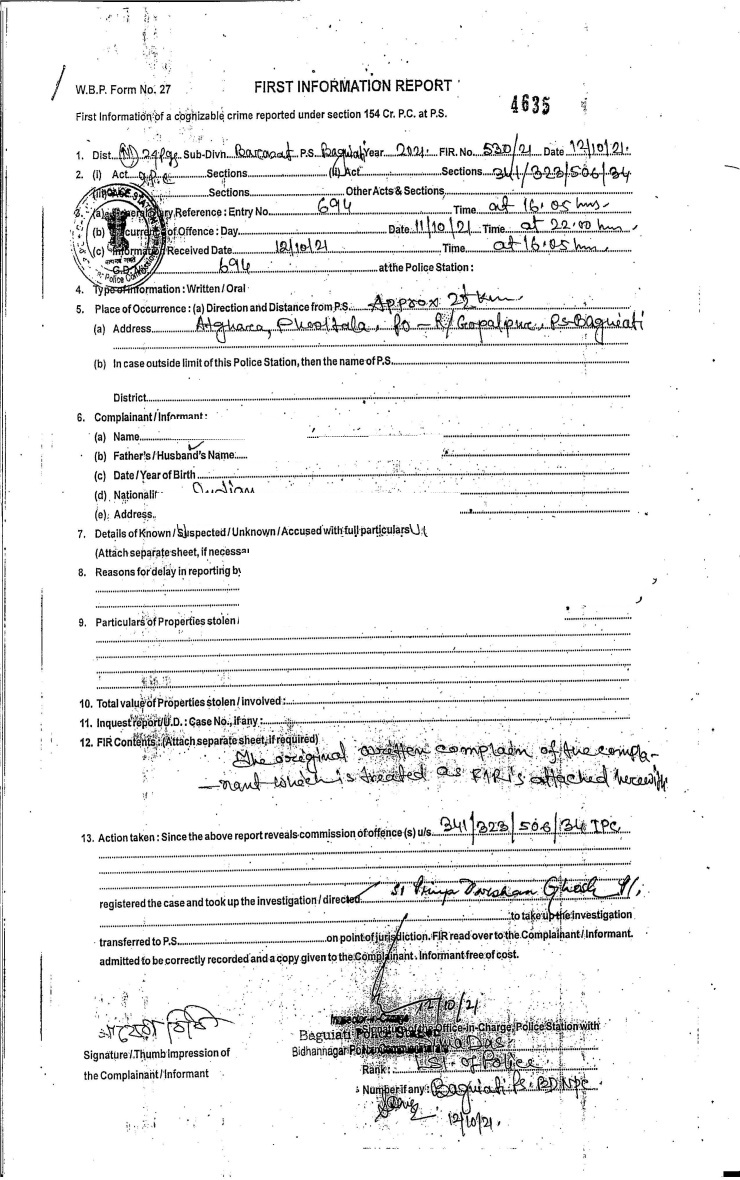 W.B.P. Form No. 27 FIRST INFORMATION REPORT
4635
First Information of a cognizable crime reported under section 154 Cr. P.C. at P.S.
1. Dist. (N) 24 Pgs Sub-Divn. Barasat P.S. Baguiati Year 2021 FIR. No. 530/21 Date 12/10/21.
2. (I) Act I.P.C Sections (II) Act Sections 341/323/506/34
Sections Other Acts & Sections
3. (a) General Diary Reference : Entry No. 694 Time at 16.05 hrs
(b) Occurrence of Offence : Day Date 11/10/21 Time at 22.00 hrs
(c) Information Received Date 12/10/21 Time at 16.05 hrs
694 at the Police Station :
4. Type of Information : Written / Oral
5. Place of Occurrence : (a) Direction and Distance from P.S. Approx
(a) Address Atghara, PO - R/Gopalpur, PS Baguiati
(b) In case outside limit of this Police Station, then the name of P.S.
District
6. Complainant / Informant :
(a) Name
(b) Father's / Husband's Name:
(c) Date / Year of Birth
(d) Indian
(e) Address.
7. Details of Known / Suspected / Unknown / Accused with full particulars
(Attach separate sheet, if
8. Reasons for delay in reporting
9. Particulars of Properties stolen
10. Total value of Properties stolen / involved :
11. Inquest report/U.D. : Case No., if any :
12. FIR Contents : (Attach separate sheet, if required)
The original written complain of the compla-
-nant which is treated as FIR is attached herewith
13. Action taken : Since the above report reveals commission of offence (s) u/s. 341/323/506/34 IPC
registered the case and took up the investigation / directed SI Priya Darshan Ghosh
to take up the Investigation
transferred to P.S. on point of jurisdiction. FIR read over to the Complainant / Informant.
admitted to be correctly recorded and a copy given to the Complainant. Informant free of cost.
12/10/21
Signature of the Office-In-Charge, Police Station with
Baguiati Police Station
Bidhannagar
Signature / Thumb Impression of
the Complainant / Informant
Das
Rank : of Police
Number if any : Baguiati PS. BDNPC
12/10/21.